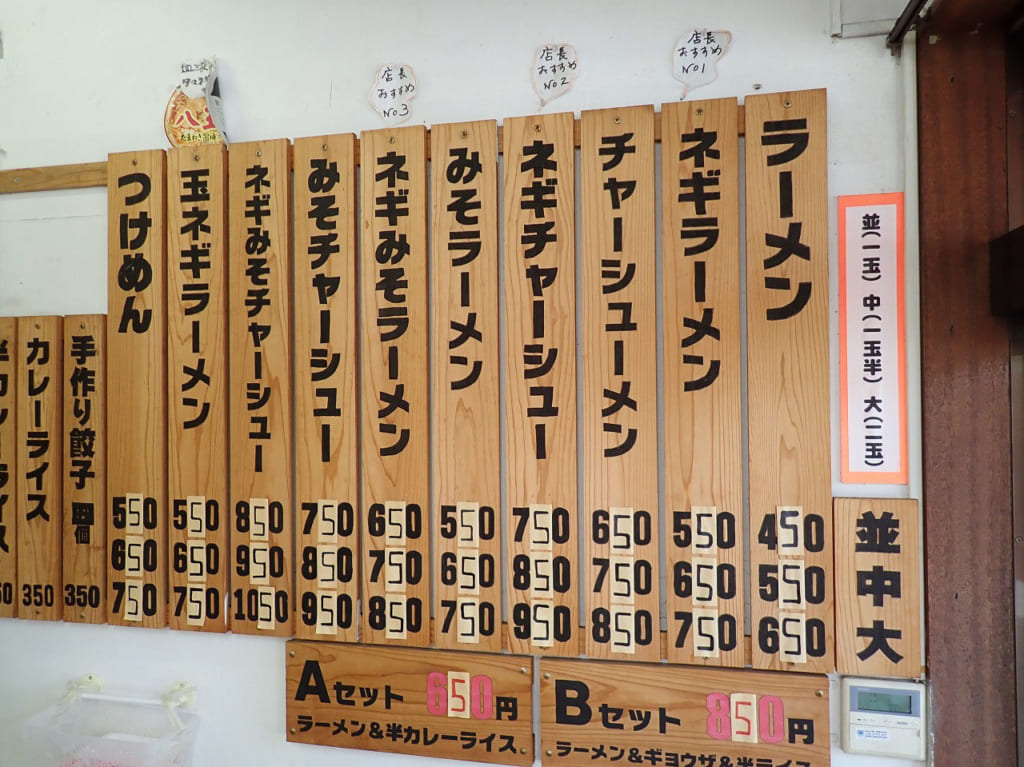 店長
おすすめ
No1
店長
おすすめ
No2
店長
おすすめ
No3
並(一玉) 中(一玉半) 大(二玉)
並
中
大
ラーメン
450
550
650
ネギラーメン
550
650
750
チャーシューメン
650
750
850
ネギチャーシュー
750
850
950
みそラーメン
550
650
750
ネギみそラーメン
650
750
850
みそチャーシュー
750
850
950
ネギみそチャーシュー
850
950
1050
玉ネギラーメン
550
650
750
つけめん
550
650
750
手作り餃子 四個
350
カレーライス
350
半カレーライス
50
Aセット 650円
ラーメン&半カレーライス
Bセット 850円
ラーメン&ギョウザ&半ライス